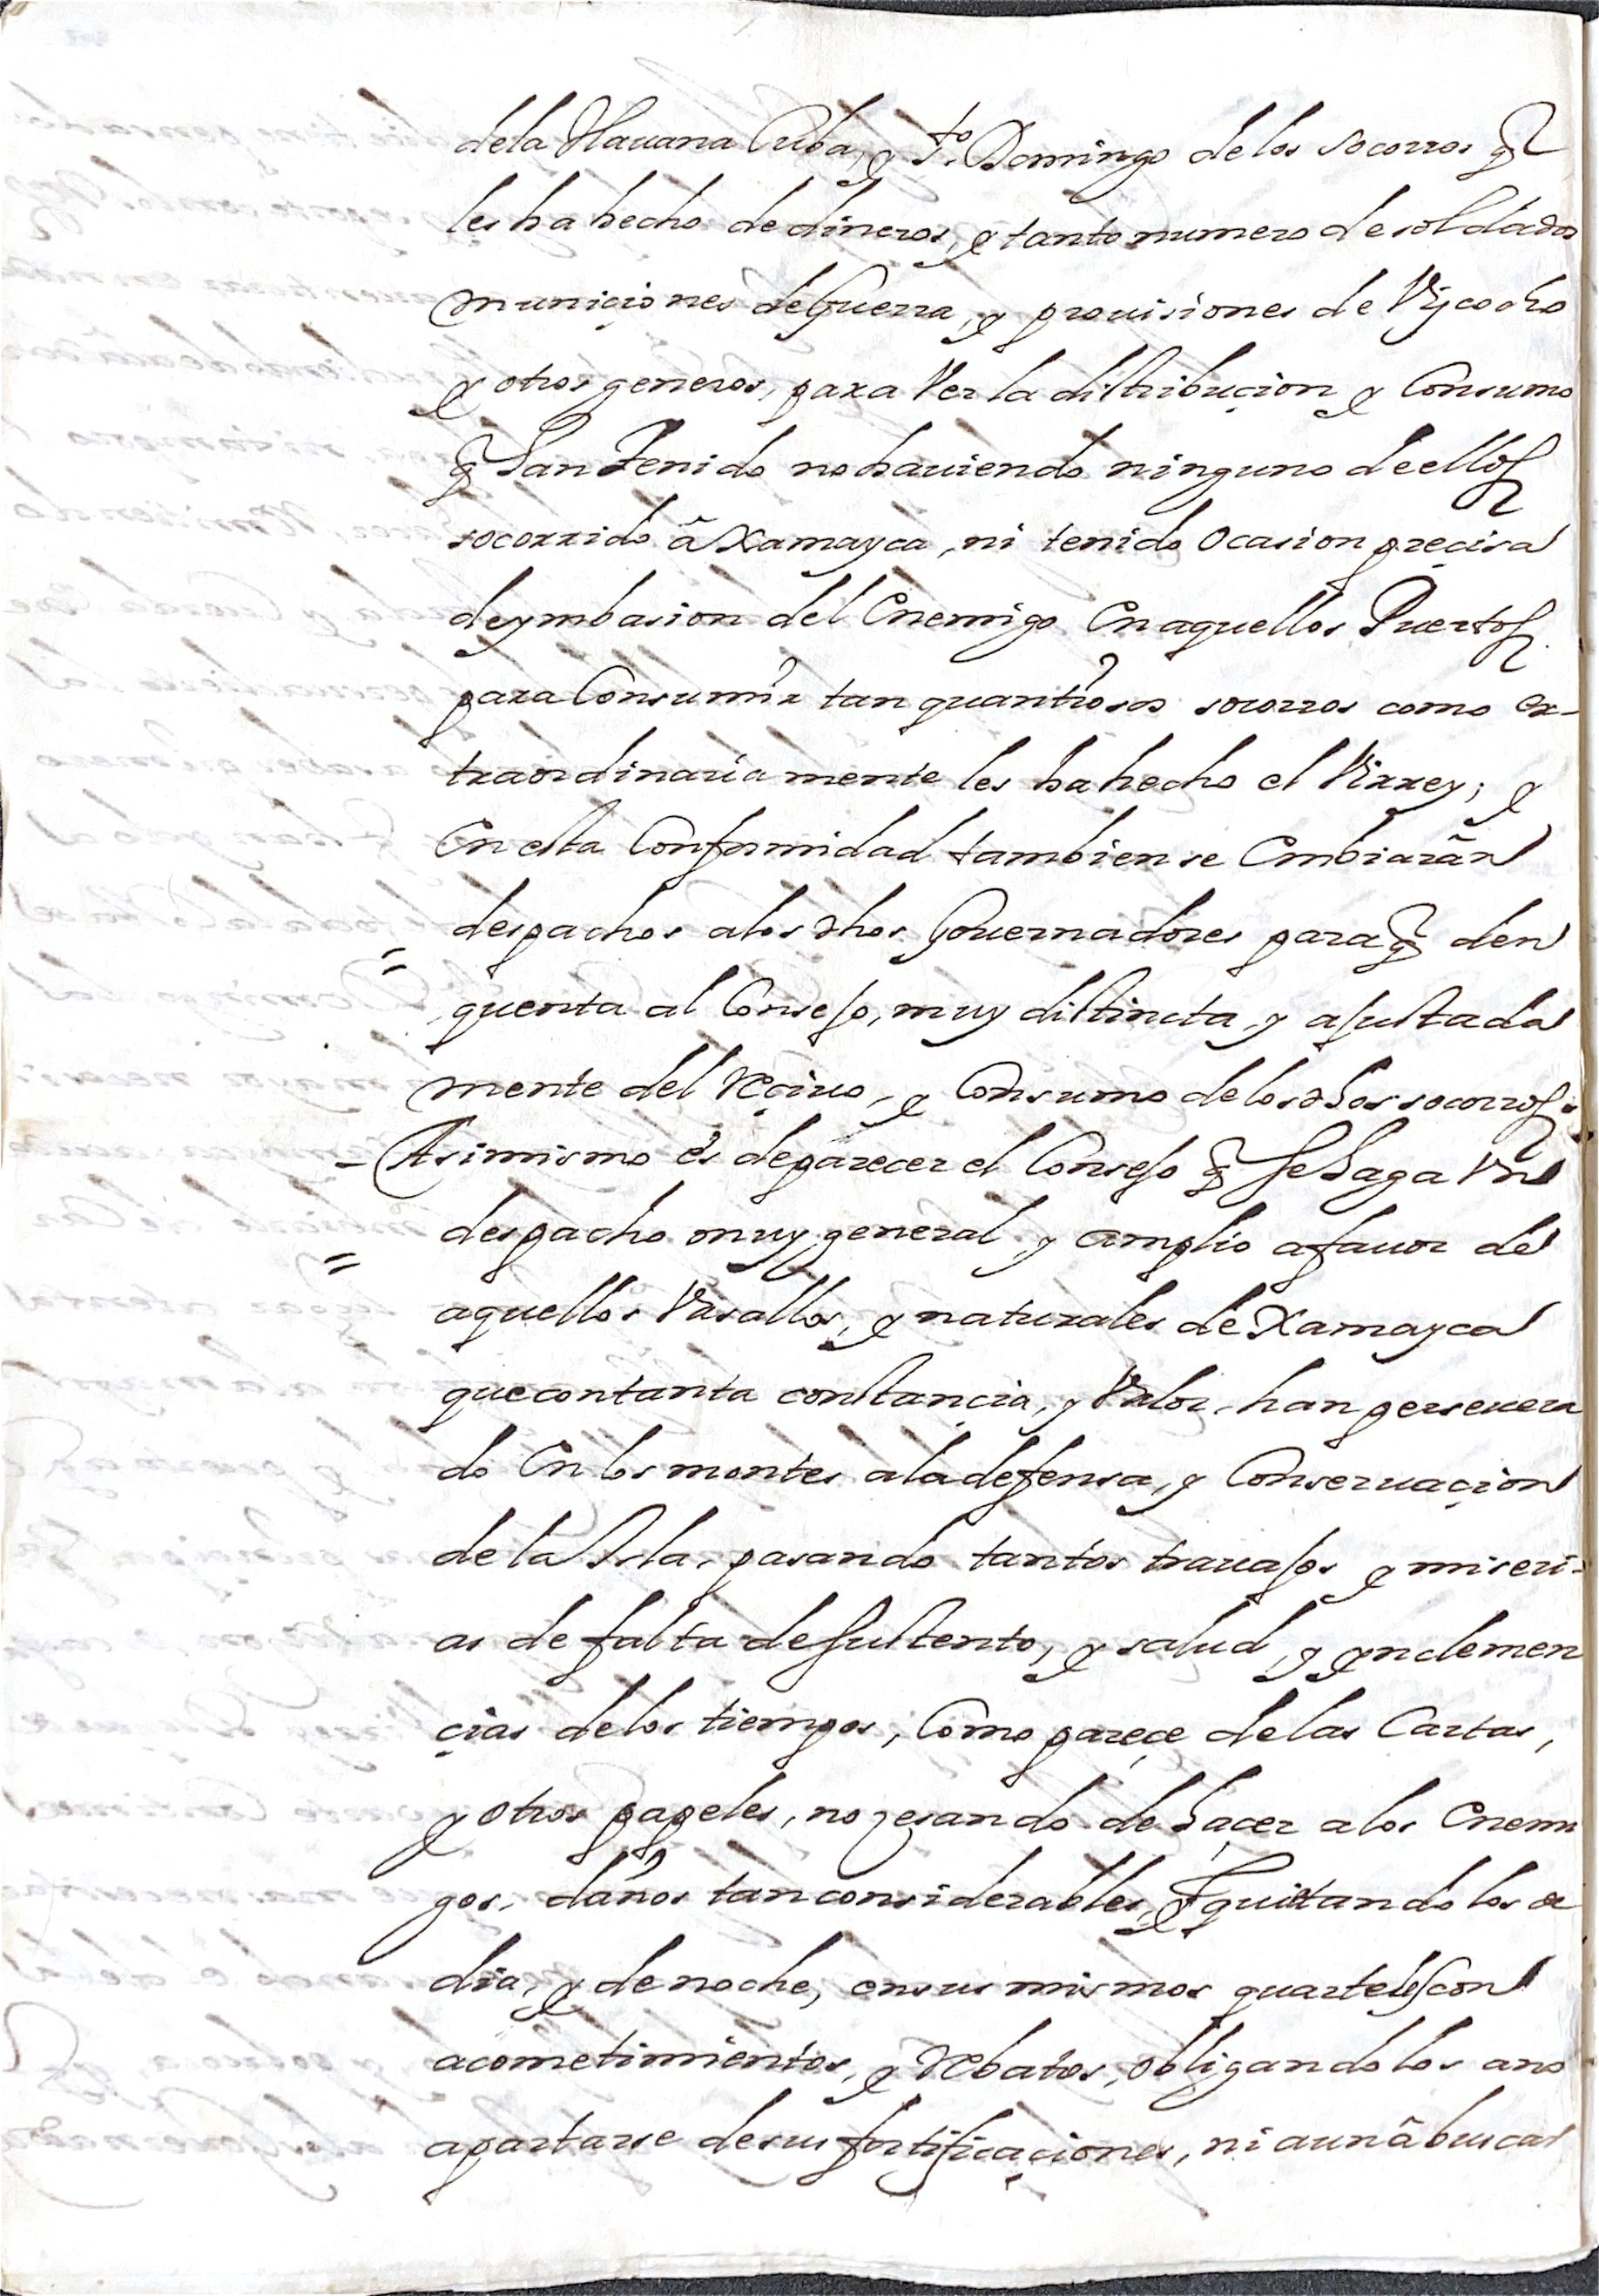 dela Hauana Cuba, y Sto. Domingo delos socorros q̃
les ha hecho de dineros, y tanto numero de soldados
municiçiones de Guerra, y prouisiones de Vyzcocho
y otros generos, para Ver la distribuçion y Consumo
q̃ han tenido no hauiendo ninguno de ellos
socorrido â Xamayca, ni tenido ocasion preçisa
de ymbasion del Enemigo En aquellos Puertos
para Consumir tan quantiosos socorros como ex-
traordinariamente les ha hecho el Virrey; y
En esta Conformidad tambien se Embiarãn
= despachos alos dhos Gouernadores para q̃ den
quenta al Consejo, muy distincta, y ajustada
mente del Reçiuo, y Consumo delos dhos socorros.
- Asimismo es de parecer el Consejo q̃ se haga Vn
= despacho muy general y amplio a fauor de
aquellos Vasallos, y naturales de Xamayca
que con tanta constancia, y Valor, han perseuera
do En los montes a la defensa, y Conseruaçion
de la Isla, pasando tantos trauajos y miseri-
as de falta de sustento, y salud, y ynclemen
çias delos tiempos, Como pareçe de las Cartas,
y otros papeles, no zesando de haçer a los Enemi
gos, daños tan considerables, ynquietandolos de
dia, y de noche, en sus mismos quarteles con
acometimientos, y Rebatos, obligandolos a no
apartarse de sus fortificaçiones, ni aun â buscar